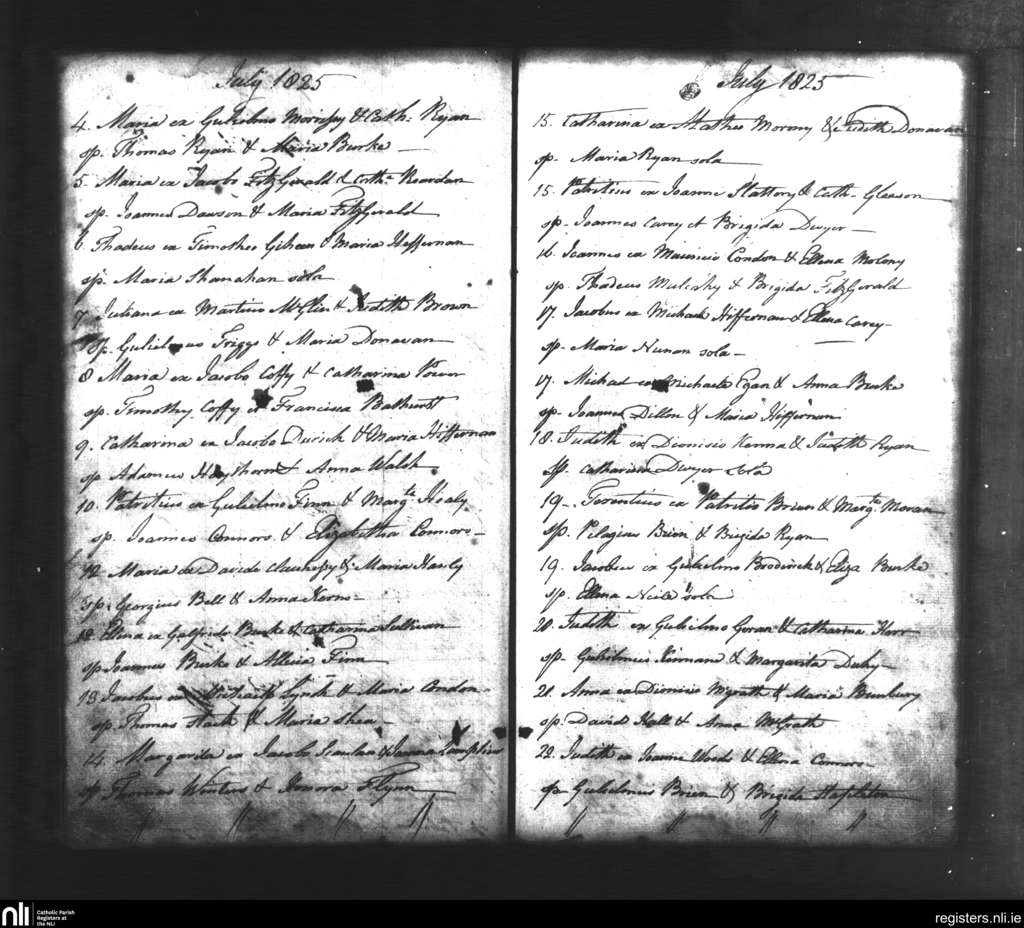 July 1825
4. Maria ex Gulielmo Morissy & Cath: Ryan
sp. Thomas Ryan & Maria Burke
5. Maria ex Jacobo FitzGerald & Cath: Reardan
sp. Joannes Dawson & Maria FitzGerald
6 Thadeus ex Timotheo & Maria Heffernan
sp. Maria Shanahan sola
7 Juliana ex Martino & Judith Brown
sp. Gulielmus Triggs & Maria Donavan
8 Maria ex Jacobo Coffy & Catharina Power
sp. Timothy Coffy et Francisca Bathurst
9. Catharina ex Jacobo & Maria Hiffernan
sp Adamus & Anna Walsh
10. Patritius ex Gulielmo Finn & Margte Healy
sp. Joannes Connors & Elizabetha Connors
12 Maria ex Davide & Maria
sp. Georgius Bell & Anna Kerns
13. Ellena ex Galfrido Burke & Catharina Sullivan
sp Joannes Burke & Allicia Finn
13 Jacobus ex Lynch & Maria Condon
sp. Thomas & Maria Shea
14. Margarita ex Jacobo Scanlan &
sp Thomas Winters & Honora Flynn
July 1825
15. Catharina ex & Judith Donavan
sp. Maria Ryan sola
15. Patritius ex Joanne Slattory & Cath. Gleason
sp. Joannes Carey et Brigida Dwyer
16. Joannes ex Mauricio Condon & Ellena Molony
sp. Thadeus Mulcahy & Brigida FitzGerald
17. Jacobus ex Michaele Hiffernan & Ellena Carey
sp. Maria Nunan sola
17. Michael ex Michaele Egan & Anna Burke
sp. Joannes Dillon & Maria Hiffernan
18. Judith ex Dionisio & Judith Ryan
sp. Catharina Dwyer sola
19. Terentius ex Patritio Brien & Margta Moran
sp. Pelagius Brien & Brigida Ryan
19. Jacobus ex Gulielmo Brodirick & Eliza Burke
sp. Ellena Neile sola
20. Judith ex Gulielmo & Catharina
sp. Gulielmus & Margarita
21. Anna ex Dionisio Mgrath & Maria Bunbury
sp. David Hall & Anna McGrath
22. Judith ex Joanne Woods & Ellena Connors
sp Gulielmus Brien & Brigida Stapleton
nli
Catholic Parish
Registers at
the NLI
registers.nli.ie